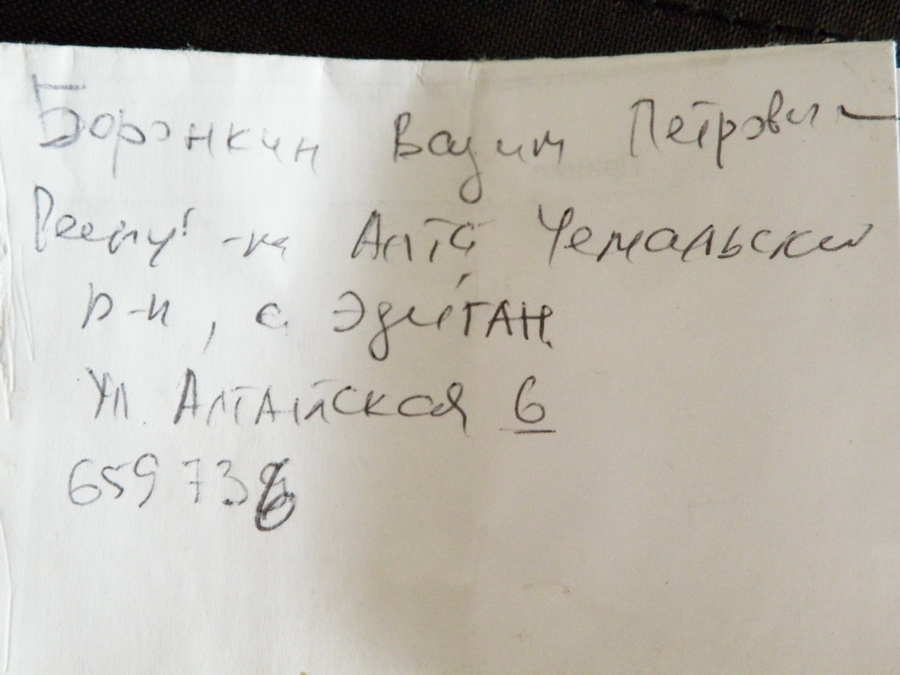 Боронкин Вадим Петрович
Алтай Чемальский
р-н, с. Эдиган
Ул. Алтайская 6
659 736